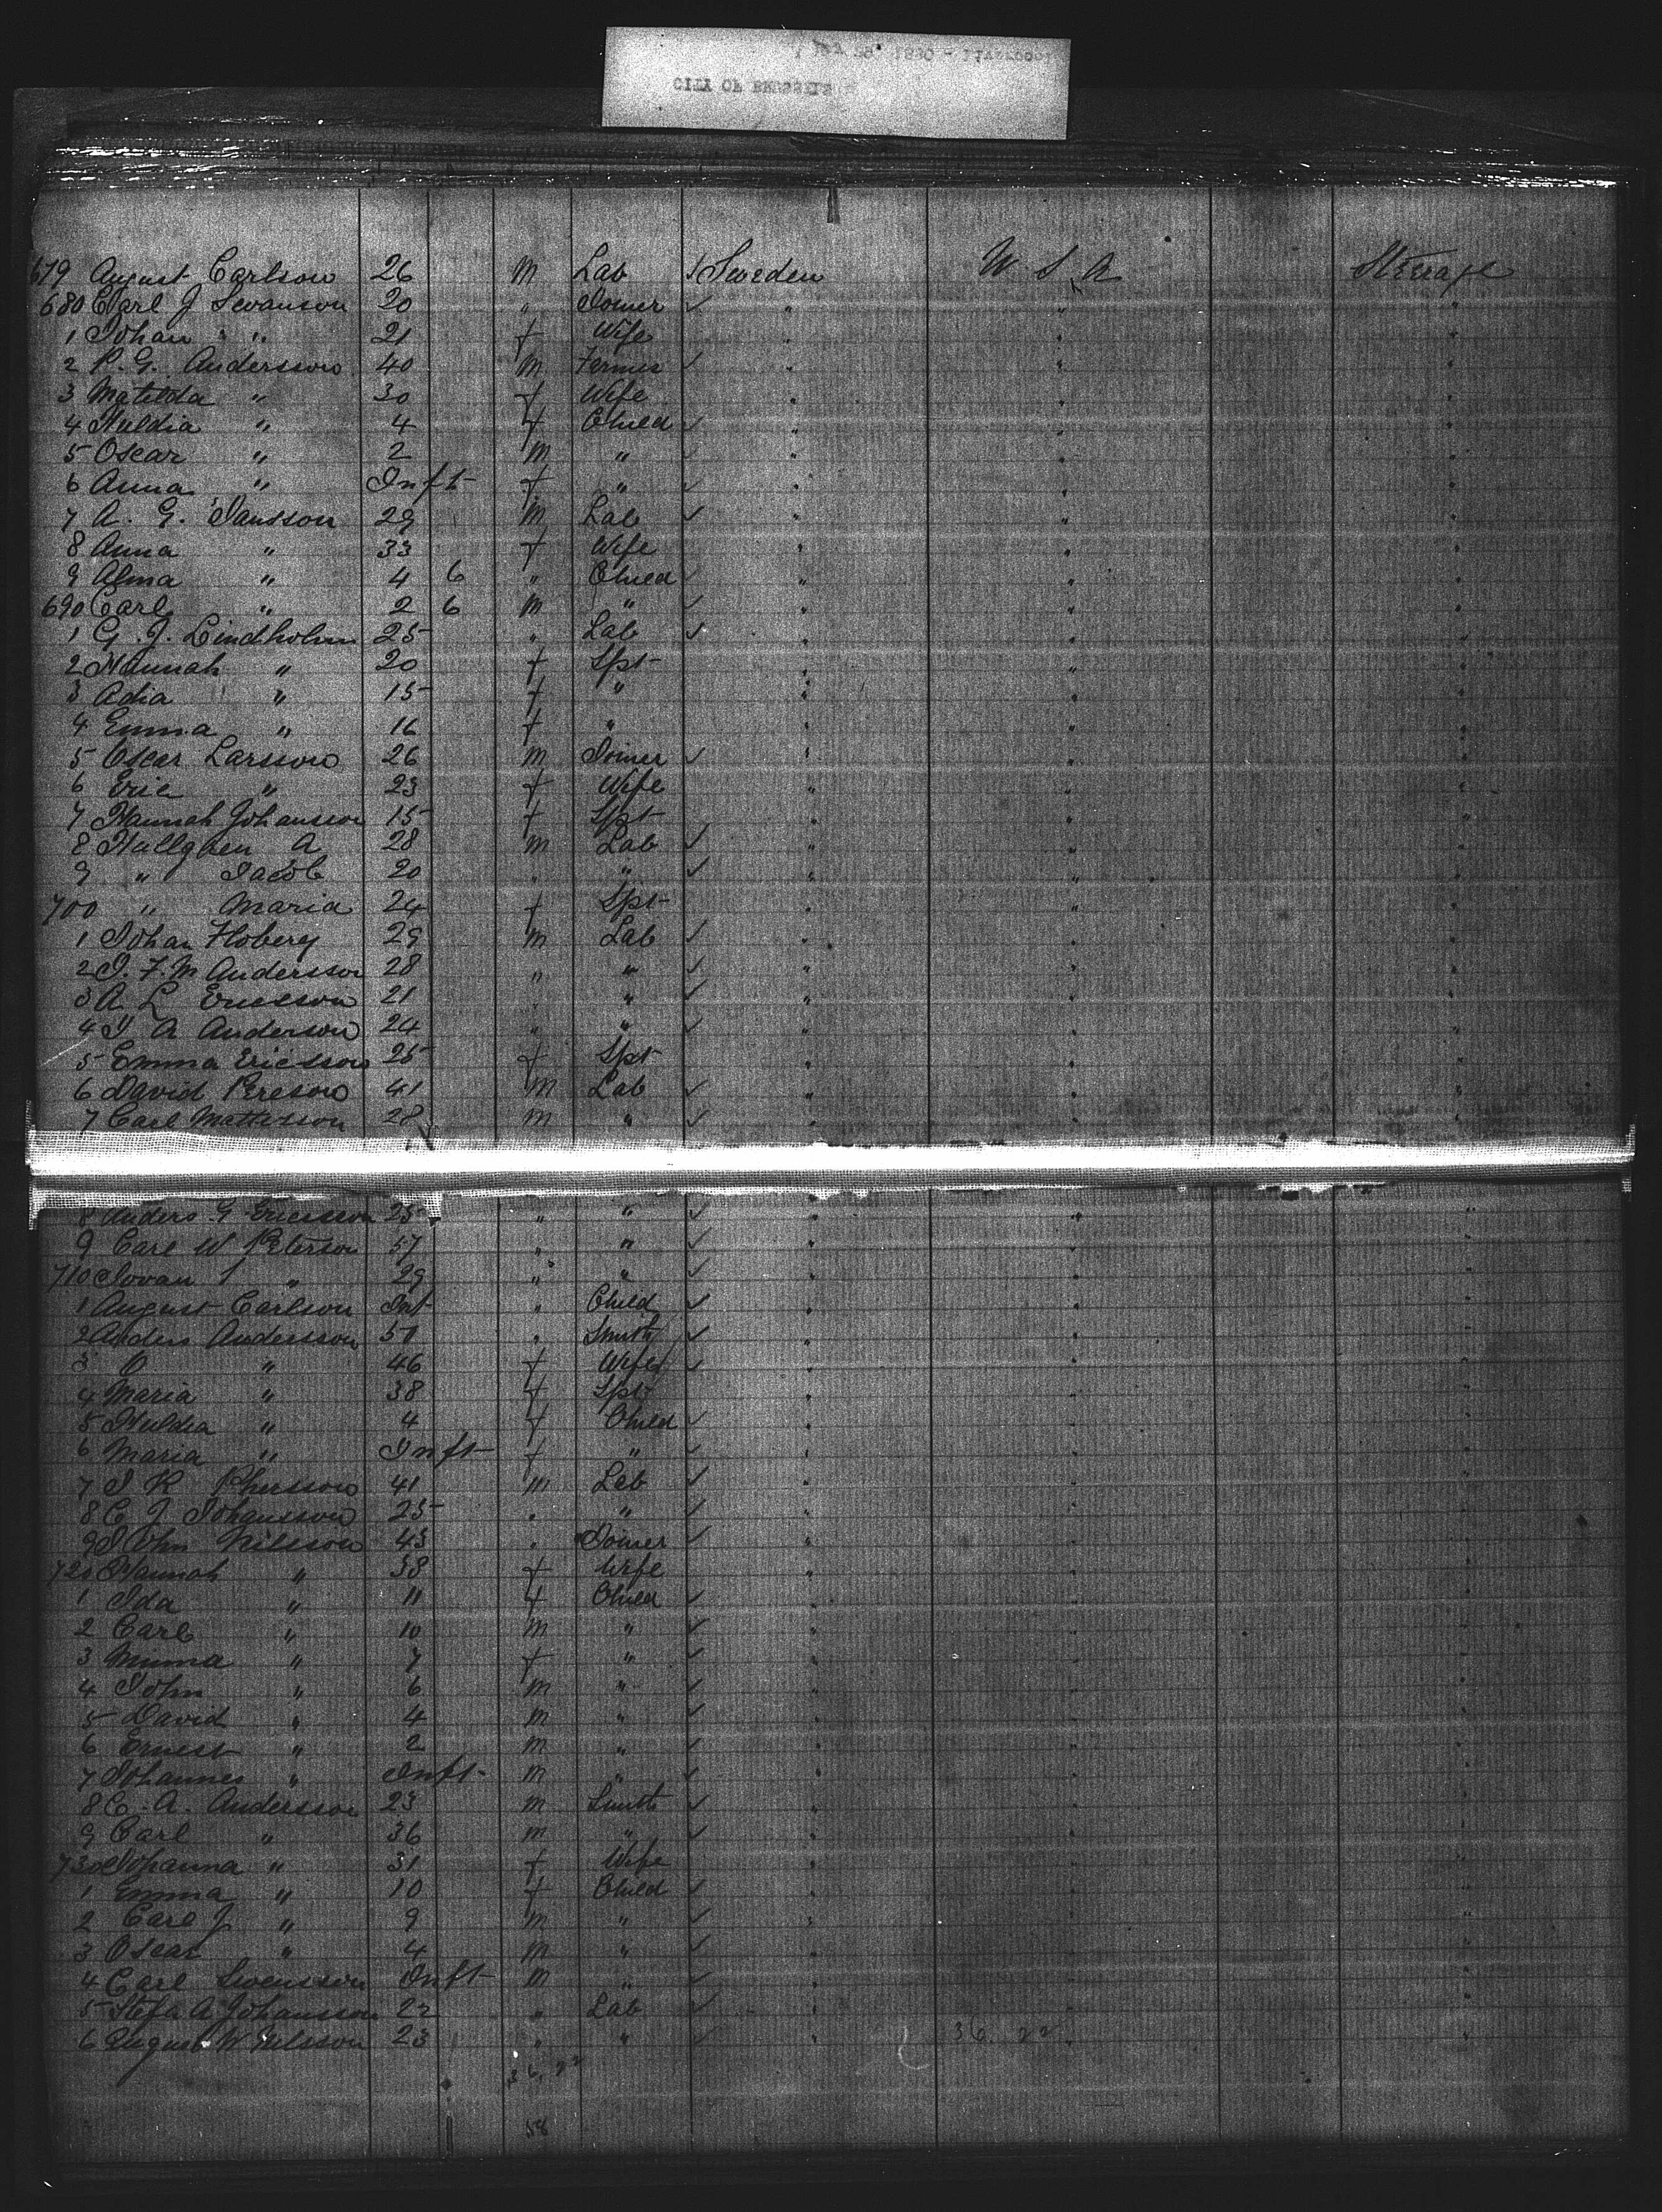 CITY OF BRUSSELS
679 August Carlson 26 m Lab ✓ Sweden U S A Steerage
680 Carl J Swanson 20 " Joiner ✓ " " "
1 Johan " 21 f Wife " " "
2 P. G. Andersson 40 m Farmer ✓ " " "
3 Matilda " 30 f Wife " " "
4 Huldia " 4 f Child ✓ " " "
5 Oscar " 2 m " ✓ " " "
6 Anna " Inft f " ✓ " " "
7 A. G. Jansson 29 m Lab ✓ " " "
8 Anna " 33 f Wife " " "
9 Alma " 4 6 " Child ✓ " " "
690 Carl " 2 6 m " ✓ " " "
1 G. J. Lindholm 25 " Lab ✓ " " "
2 Hannah " 20 f Spt " " "
3 Adia " 15 f " " " "
4 Emma " 16 f " " " "
5 Oscar Larsson 26 m Joiner ✓ " " "
6 Eric " 23 f Wife " " "
7 Hannah Johansson 15 f Spt " " "
8 Hallgren A 28 m Lab ✓ " " "
9 " Jacob 20 " " ✓ " " "
700 " Maria 24 f Spt " " "
1 Johan Hoberg 29 m Lab ✓ " " "
2 J. F. M Andersson 28 " " ✓ " " "
3 A L Ericsson 21 " " ✓ " " "
4 J A Anderson 24 " " ✓ " " "
5 Emma Ericsson 25 f Spt " " "
6 David Pereson 41 m Lab ✓ " " "
7 Carl Mattisson 28 m " ✓ " " "
8 Anders G Ericsson 25 " " ✓ " " "
9 Carl W Peterson 57 " " ✓ " " "
710 " 29 " " ✓ " " "
1 August Carlson Inft " Child ✓ " " "
2 Anders Andersson 50 " Smith ✓ " " "
3 O " 46 f Wife ✓ " " "
4 Maria " 38 f Spt " " "
5 Huldia " 4 f Child ✓ " " "
6 Maria " Inft f " ✓ " " "
7 J K 41 m Lab ✓ " " "
8 C J Johansson 25 " " ✓ " " "
9 John Nilsson 43 " Joiner ✓ " " "
720 Hannah " 38 f Wife " " "
1 Ida " 11 f Child ✓ " " "
2 Carl " 10 m " ✓ " " "
3 Minna " 7 f " ✓ " " "
4 John " 6 m " ✓ " " "
5 David " 4 m " ✓ " " "
6 Ernest " 2 m " ✓ " " "
7 Johannes " Inft m " ✓ " " "
8 C. A. Andersson 23 m Smith ✓ " " "
9 Carl " 36 m " ✓ " " "
730 Johanna " 31 f Wife " " "
1 Emma " 10 f Child ✓ " " "
2 Carl J " 9 m " ✓ " " "
3 Oscar " 4 m " ✓ " " "
4 Carl Swensson Inft m " ✓ " " "
5 A Johansson 22 " Lab ✓ " " "
6 August W Nilsson 23 " " ✓ " 36. 22 "
36. 22
58